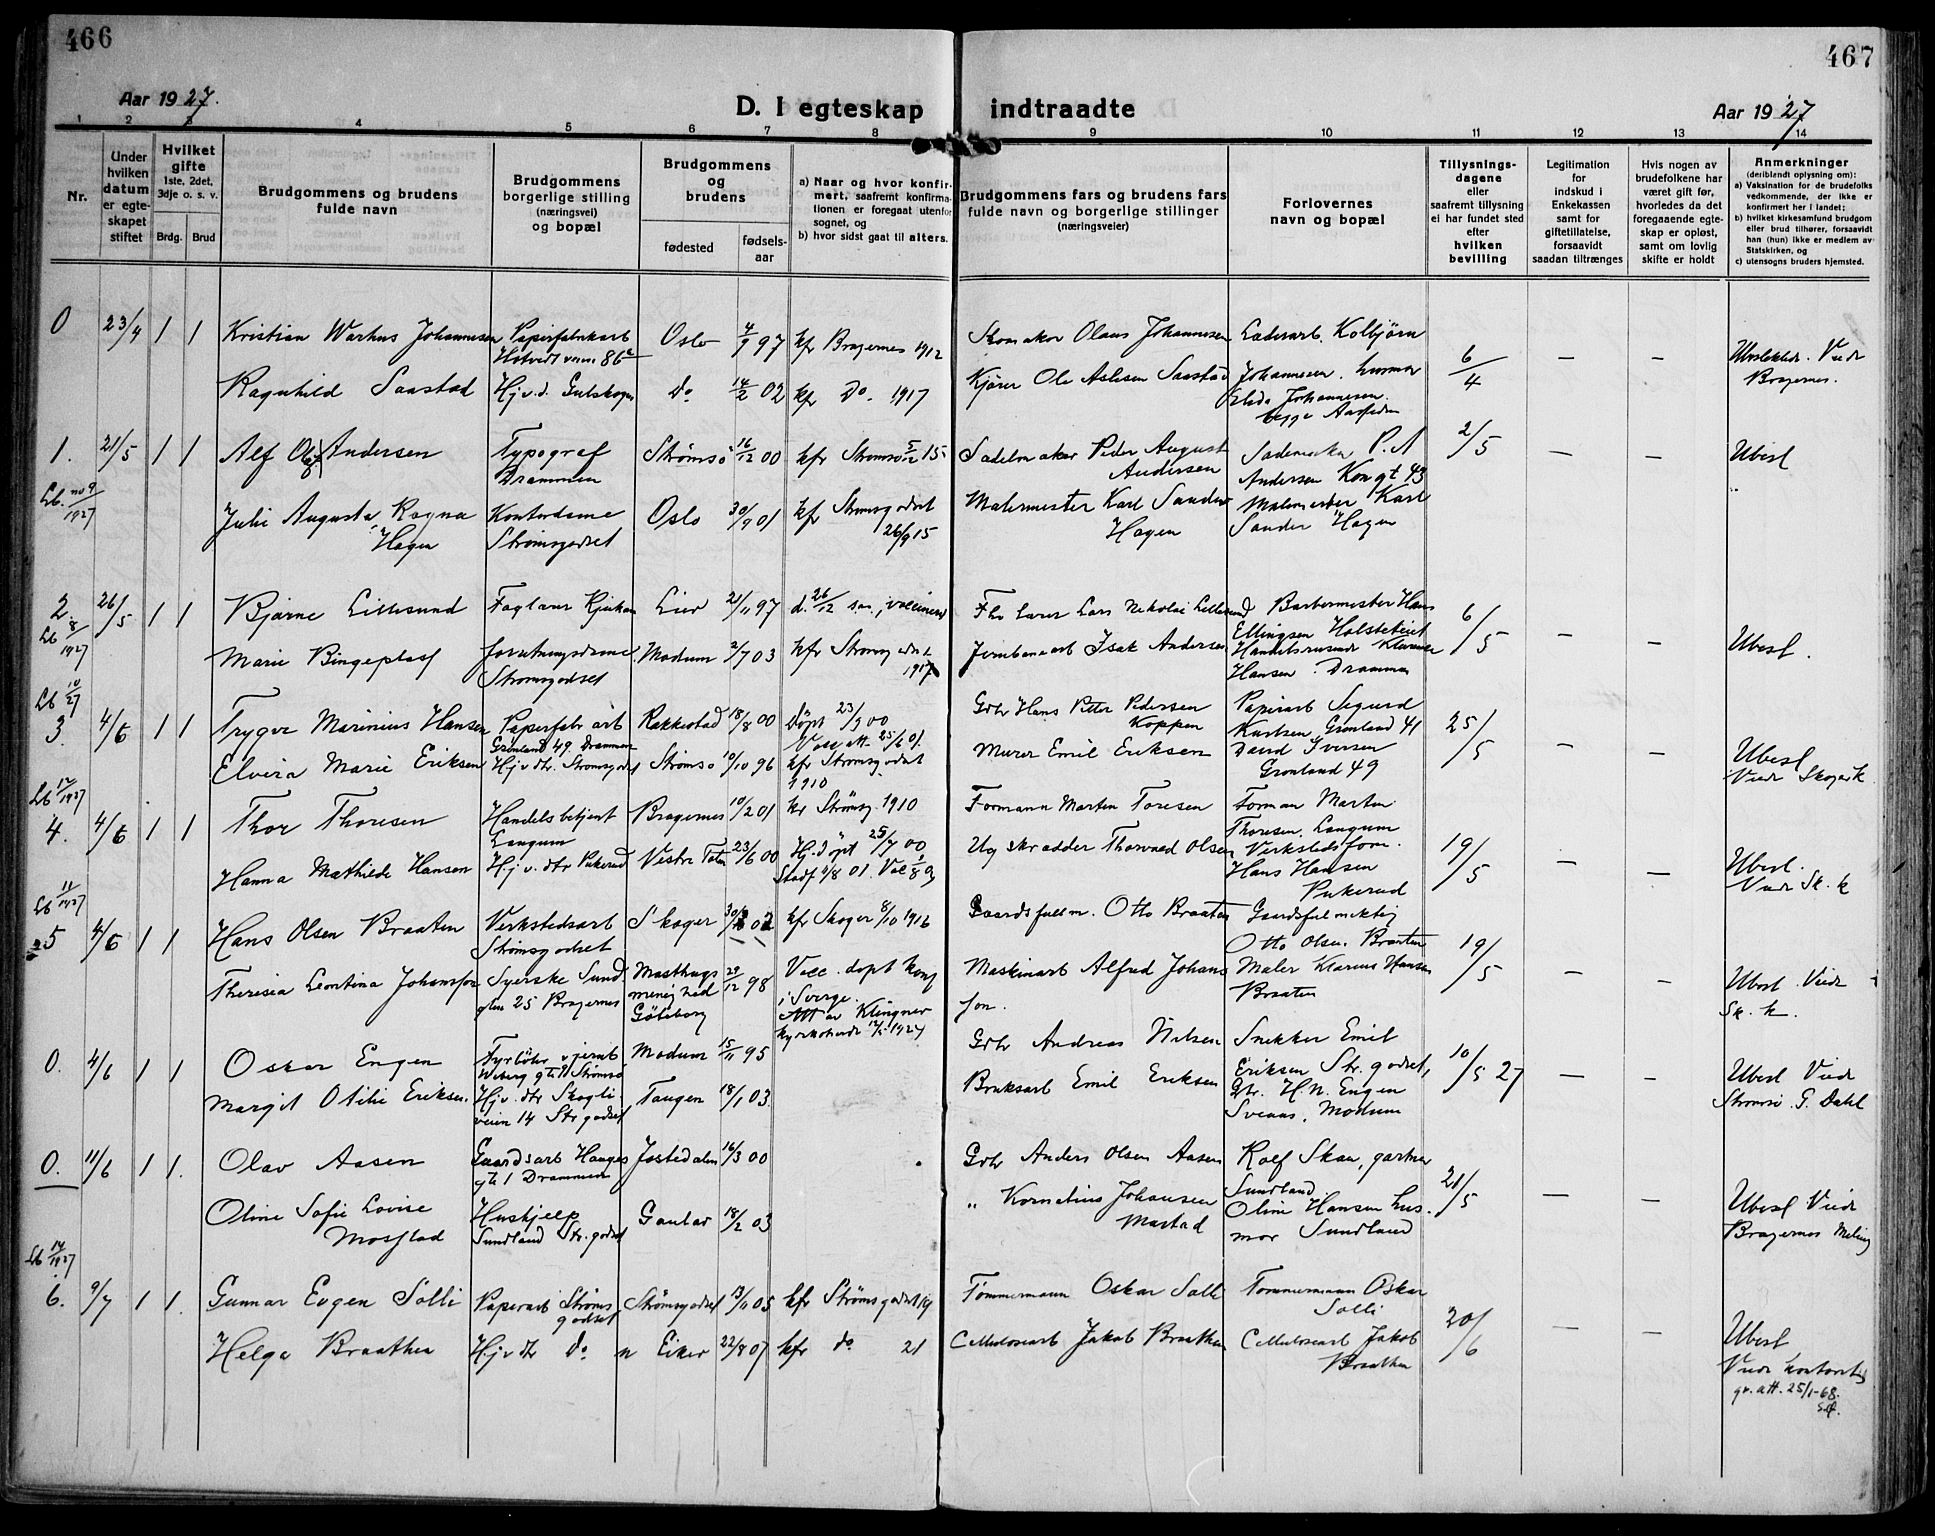 466
467
Aar 1927.
D. I egteskap indtraadte
Aar 1927
1 2 3 4 5 6 7 8 9 10 11 12 13 14
Nr.
Under hvilken datum er egteskapet stiftet
Hvilket gifte 1ste, 2det, 3dje o. s. v.
Brdg. Brud
Brudgommens og brudens fulde navn
Brudgommens borgerlige stilling (næringsvei) og bopæl
Brudgommens og brudens
fødested
fødsels-aar
a) Naar og hvor konfirmert, saafremt konfirmationen er foregaat utenfor sognet, og
b) hvor sidst gaat til alters.
Brudgommens fars og brudens fars fulde navn og borgerlige stillinger (næringsveier)
Forlovernes navn og bopæl
Tillysnings-dagene eller saafremt tillysning ei har fundet sted efter hvilken bevilling
Legitimation for indskud i Enkekassen samt for giftetillatelse, forsaavidt saadan tiltrænges
Hvis nogen av brudefolkene har været gift før, hvorledes da det foregaaende egteskap er opløst, samt om lovlig skifte er holdt
Anmerkninger (deriblandt oplysning om):
a) Vaksination for de brudefolks vedkommende, der ikke er konfirmert her i landet;
b) hvilket kirkesamfund brudgom eller brud tilhører, forsaavidt han (hun) ikke er medlem av Statskirken, og
c) utensogns bruders hjemsted.
0 23/4 1 1 Kristian Warhus Johannesen Papirfabrikarb Oslo 4/9 97 kfr Bragernes 1912 Skomaker Olaus Johannesen Læderarb. Kolbjørn 6/4 — —
Ragnhild Saastad Hj.v.d. Gulskogen Do 14/2 02 kfr Do. 1917 Kjører Ole Aslesen Saastad Johannesen. husmor
Elida Johannesen. begge Aassiden
Viede Bragernes.
1. 21/5 1 1 Alf Olaf Andersen Typograf Drammen Strømsø 16/12 00 kfr Strømsø 5/12 15 Sadelmaker Peder August Andersen Sademaker P. A Andersen Kongt 43 2/5 — — Ubesl
Lb. no 9/1927
Julie Augusta Ragna Hagen Kontordame Strømsgodset Oslo 30/9 01 kfr Strømsgodset 26/9 15 Malermester Karl Sander Hagen Malermester Karl Sander Hagen
2. 26/5 1 1 Bjarne Lillesund Faglærer Rjukan Lier 21/11 97 d. 26/12 s.a., vaccinert Fhv lærer Lars Nikolai Lillesund Barbermester Hans Ellingsen Holstebeiet 6/5 — — Ubesl.
Lb 8/1927
Marie Bingeplass forretningsdame Strømsgodset Modum 2/7 03 kfr Strømsgodset 1917 Jernbanearb Isak Andersen Handelsreisende Hansen. Drammen
Lb 10/27
3. 4/6 1 1 Trygve Marinius Hansen Papirfabr arb Grønland 49. Drammen Rakkestad 18/8 00 Døpt 23/9 00 Vacc att 25/6 01. Gbr Hans Petter Pedersen Koppen Papirarb Sigurd Karlsen Grønland 41 25/5 — — Ubesl
Elvira Marie Eriksen Hj v. dtr. Strømsgodset Strømsø 10/10 96 kfr Strømsgodset 1910 Murer Emil Eriksen David Iversen Grønland 49 Viede Skoger k.
Lb 12/1927
4. 4/6 1 1 Thor Thoresen Handelsbetjent Langum Bragernes 10/2 01 kr Strømsg. 1910 Formann Marten Toresen Forman Marten Thoresen, Langum 19/5 — — Ubesl.
Hanna Mathilde Hansen Hj v. dtr Pukerud Vestre Toten 23/6 00 Hj.døpt 25/7 00 Stadf 1/8 01. Ug skrædder Thorvald Olsen Verkstedsform. Hans Hansen Pukerud Viede Sk. k
Lb 11/1927
5 4/6 1 1 Hans Olsen Braaten Verkstedsarb Strømsgodset Skoger kfr Skoger 8/10 1916 Gaardsfullm. Otto Braaten Gaardsfulmektig Otto Olsen Braaten 19/5 — — Ubesl Viede Sk. k.
Theresia Leontina Johansson Syerske Sundgten 25 Bragernes Masthugs menighed Göteborg 29/12 98 Vacc. døpt konf i Sverge. Att av Klingner kyrkoherde 17/5 1927 Maskinarb Alfred Johansson. Maler Klarens Hansen Braaten
0. 4/6 1 1 Oskar Engen Fyrbøter v jernb Weberg gt 11 Strømsø Modum 15/11 95 Gbr Andreas Nilsen Snekker Emil Eriksen Str. godset, 10/5 27 — — Ubesl Viede
Margit Otilie Eriksen. Hjv. dtr Skogliveien 14 Str godset Tangen 18/1 03. Bruksarb Emil Eriksen Gbr. H. N. Engen Sveaas, Modum Strømsø. G. Dahl
0. 11/6 1 1. Olav Aasen Gaardsarb Hauges gt 1 Drammen Jostedalen 16/3 00 Gbr Anders Olsen Aasen Rolf Skau, gartner Sundland 21/5 — — Ubesl Viede
Oline Sofie Lovise Mosstad Hushjelp Sundland Str. godset Gaular 18/2 03 " Kornelius Johansen Mostad Oline Hansen husmor Sundland Bragernes
Lb 14/1927
6. 9/7 1 1. Gunnar Eugen Solli Papirarb Strømsgodset Strømsgodset 13/11 05 kfr Strømsgodset 19 Tømmermann Oskar Solli Tømmermann Oskar Solli 20/6 — — Ubesl
Helga Braathen Hj v dtr Do n Eiker 22/8 07 kfr do 21 Cellulosearb Jakob Braathen Cellulosearb Jakob Braathen Viede kontoret
gv. att. 25/1-68.